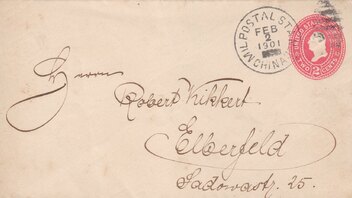 MIL. POSTAL STA.
FEB
2
1901
CHINA
UNITED STATES
TWO CENTS
2
Herrn
Robert Kikkert
Elberfeld
Sadowastr. 25.